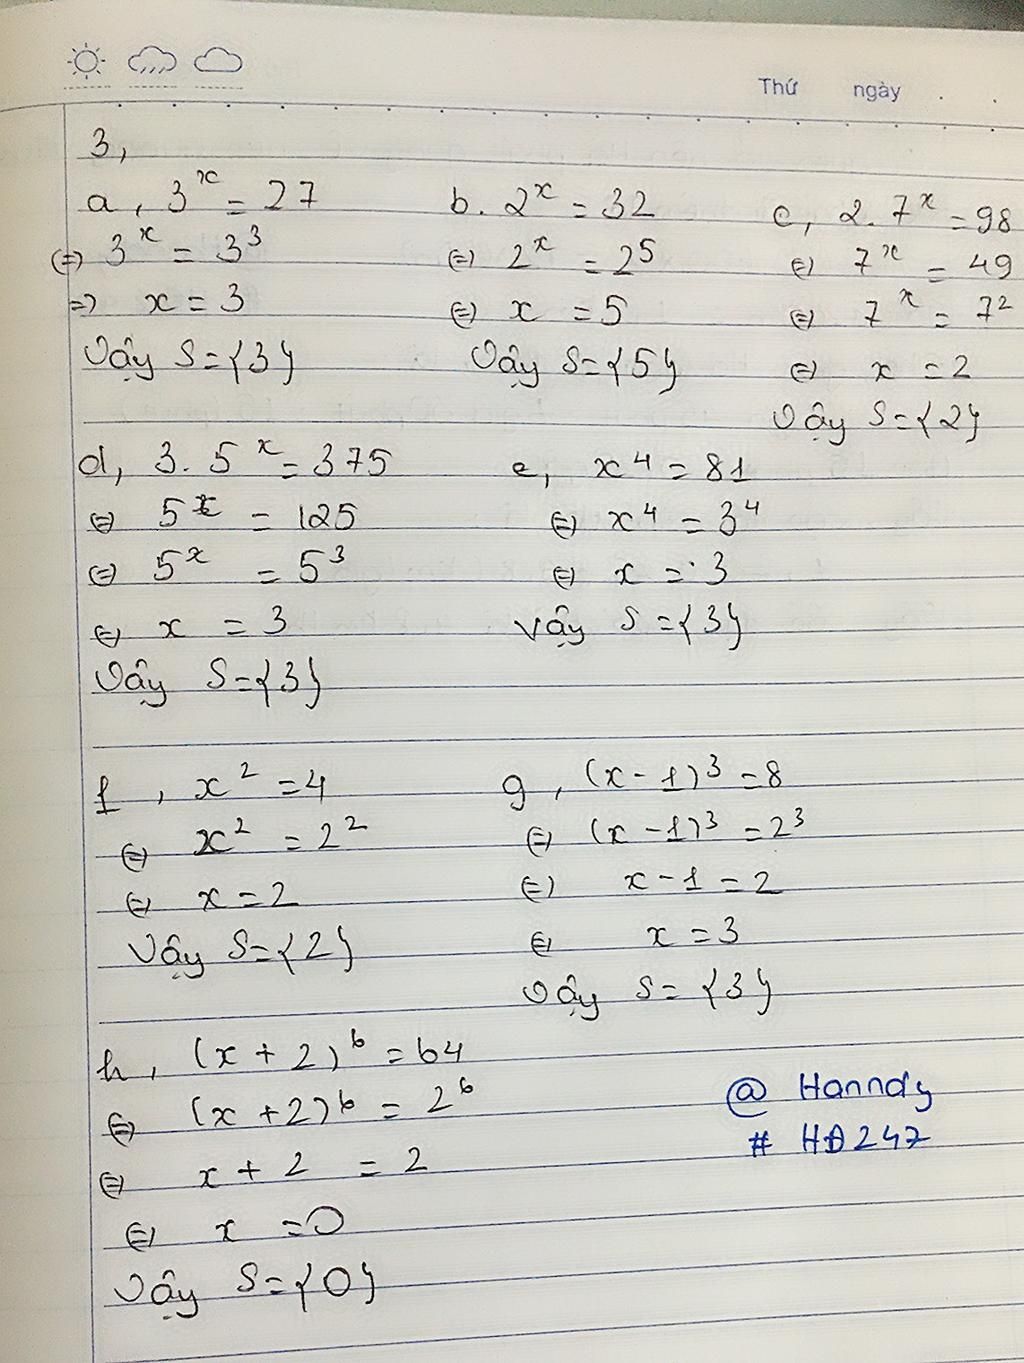 Thứ ngày
3,
a, 3^x = 27
(=) 3^x = 3^3
=) x = 3
Vậy S={3}
b. 2^x = 32
(=) 2^x = 2^5
(=) x = 5
Vậy S={5}
c, 2.7^x = 98
(=) 7^x = 49
(=) 7^x = 7^2
(=) x = 2
Vậy S={2}
d, 3.5^x = 375
(=) 5^x = 125
(=) 5^x = 5^3
(=) x = 3
Vậy S={3}
e, x^4 = 81
(=) x^4 = 3^4
(=) x = 3
Vậy S={3}
f, x^2 = 4
(=) x^2 = 2^2
(=) x = 2
Vậy S={2}
g, (x-1)^3 = 8
(=) (x-1)^3 = 2^3
(=) x-1 = 2
(=) x = 3
Vậy S={3}
h, (x+2)^6 = 64
(=) (x+2)^6 = 2^6
(=) x+2 = 2
(=) x = 0
Vậy S={0}
@ Hanndy
# HĐ247